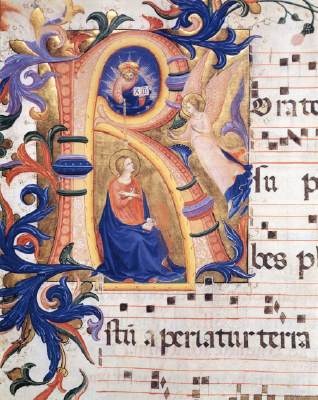 Rorate
su p
bes pl
stū aperiatur terra